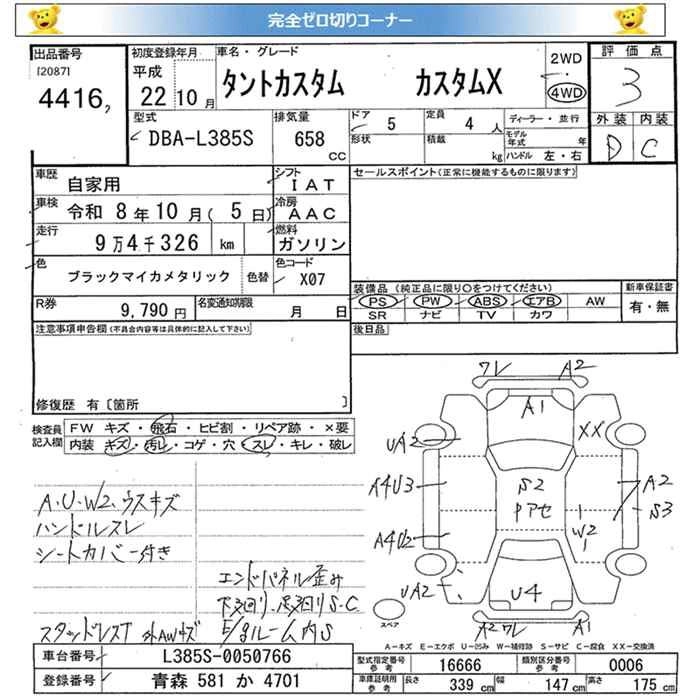 完全ゼロ切りコーナー
出品番号 初度登録年月 車名・グレード 2WD 評価点
[2087] 平成 タントカスタム カスタムX 4WD 3
4416 22 10月
型式 排気量 ドア 5 定員 4人 ディーラー・並行 外装 内装
DBA-L385S 658 CC 形状 積載 kg モデル年式 年 D C
ハンドル 左・右
車歴 自家用 シフト IAT セールスポイント(正常に機能するものに限ります)
車検 令和 8年10月(5日) 冷房 AAC
走行 9万4千326 km 燃料 ガソリン
色 ブラックマイカメタリック 色替 色コード X07
装備品(純正品に限り○をつけてください) 新車保証書
R券 9,790円 名変通知期限 月 日 PS PW ABS エアB AW 有・無
SR ナビ TV カワ
注意事項申告欄(不具合内容等は具体的に記入して下さい) 後日品
修復歴 有〔箇所 〕
検査員記入欄 FW キズ・飛石・ヒビ割・リペア跡・×要
内装 キズ・汚レ・コゲ・穴・スレ・キレ・破レ
ワレ A2
A1 XX
UA2
A4U3 S2 A2
Pアセ S3
A4U2 W2
UA2 U4
A2ワレ A1
スペア
A.U.W2、ウスキズ
ハンドルスレ
シートカバー付き
エンドパネル歪み
下回り、足回りS.C
スタッドレスT 外AWキズ E/gルーム内S
A-キズ E-エクボ U-凹み W-補修跡 S-サビ C-腐食 XX-交換済
車台番号 L385S-0050766 型式指定番号 16666 類別区分番号 0006
登録番号 青森 581 か 4701 車庫証明用参考 長さ 339 cm 幅 147 cm 高さ 175 cm